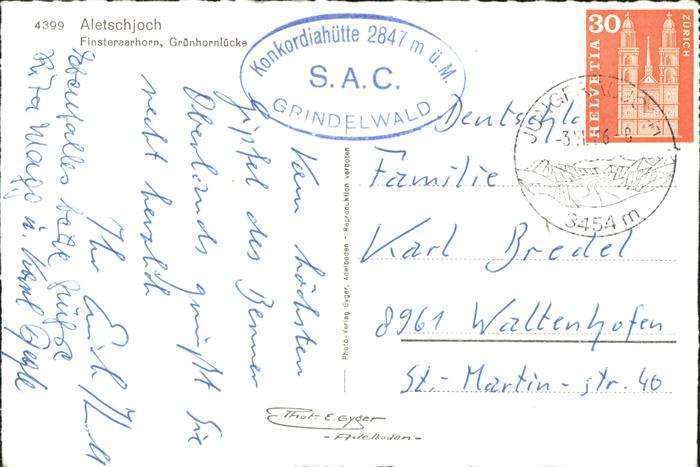 4399 Aletschjoch
Finsteraarhorn, Grünhornlücke
Konkordiahütte 2847 m ü.M.
S.A.C.
GRINDELWALD
30
HELVETIA
ZÜRICH
JUNGFRAUJOCH
3454 m
Vom höchsten
Gipfel des Berner
Oberlands grüßt Sie
recht herzlich
Ihr
Ebenfalls beste Grüße
Deutschland
Familie
Karl Bredel
8961 Waltenhofen
St.-Martin-str. 40
Photo-Verlag Gyger, Adelboden - Reproduktion verboten
Phot. E. Gyger
- Adelboden -